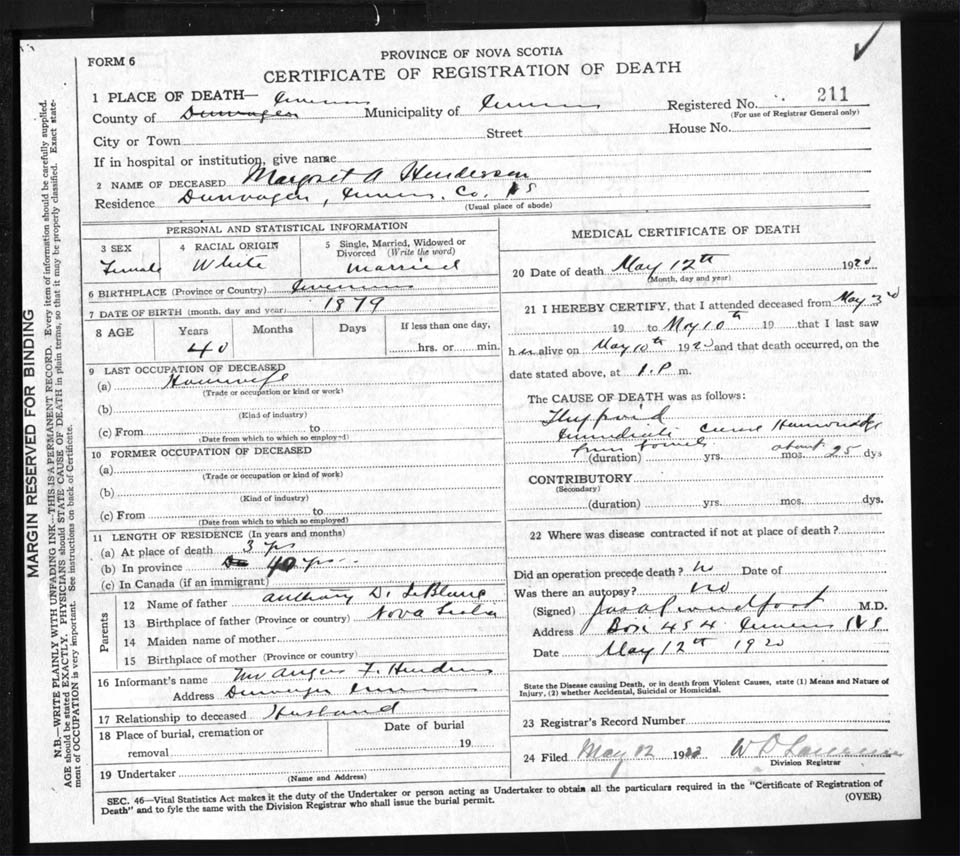 FORM 6
PROVINCE OF NOVA SCOTIA
CERTIFICATE OF REGISTRATION OF DEATH
1 PLACE OF DEATH— Inverness
County of Dunvegan Municipality of Inverness Registered No. 211
(For use of Registrar General only)
City or Town Street House No.
If in hospital or institution, give name
2 NAME OF DECEASED Margret A Henderson
Residence Dunvegan, Inverness. Co. N S
(Usual place of abode)
PERSONAL AND STATISTICAL INFORMATION
3 SEX 4 RACIAL ORIGIN 5 Single, Married, Widowed or Divorced (Write the word)
Female White Married
6 BIRTHPLACE (Province or Country) Inverness
7 DATE OF BIRTH (month, day and year) 1879
8 AGE Years Months Days If less than one day,
40 hrs. or min.
9 LAST OCCUPATION OF DECEASED
(a) Housewife
(Trade or occupation or kind or work)
(b)
(Kind of industry)
(c) From to
(Date from which to which so employed)
10 FORMER OCCUPATION OF DECEASED
(a)
(Trade or occupation or kind of work)
(b)
(Kind of industry)
(c) From to
(Date from which to which so employed)
11 LENGTH OF RESIDENCE (In years and months)
(a) At place of death 3 yrs
(b) In province 40 yrs
(c) In Canada (if an immigrant)
Parents
12 Name of father Anthony D. LeBlanc
13 Birthplace of father (Province or country) Nova Scotia
14 Maiden name of mother
15 Birthplace of mother (Province or country)
16 Informant's name Mr Angus F. Henderson
Address Dunvegan Inverness
17 Relationship to deceased Husband
18 Place of burial, cremation or removal
Date of burial
19
19 Undertaker
(Name and Address)
MEDICAL CERTIFICATE OF DEATH
20 Date of death May 12th 1920
(Month, day and year)
21 I HEREBY CERTIFY, that I attended deceased from May 3rd
19 to May 10th 19 that I last saw
h er alive on May 10th 1920 and that death occurred, on the
date stated above, at 1.P m.
The CAUSE OF DEATH was as follows:
Thyphoid
Immediate cause Hemorrhage
from bowels
(duration) yrs. mos. about 25 dys
CONTRIBUTORY
(Secondary)
(duration) yrs. mos. dys.
22 Where was disease contracted if not at place of death?
Did an operation precede death? No Date of
Was there an autopsy? No
(Signed) M.D.
Address Box 454 Inverness N S
Date May 12th 1920
State the Disease causing Death, or in death from Violent Causes, state (1) Means and Nature of
Injury, (2) whether Accidental, Suicidal or Homicidal.
23 Registrar's Record Number
24 Filed May 12 1920 W D Lawrence
Division Registrar
SEC. 46—Vital Statistics Act makes it the duty of the Undertaker or person acting as Undertaker to obtain all the particulars required in the "Certificate of Registration of
Death" and to fyle the same with the Division Registrar who shall issue the burial permit.
(OVER)
MARGIN RESERVED FOR BINDING
N.B.—WRITE PLAINLY WITH UNFADING INK—THIS IS A PERMANENT RECORD. Every item of information should be carefully supplied.
AGE should be stated EXACTLY. PHYSICIANS should STATE CAUSE OF DEATH in plain terms, so that it may be properly classified. Exact state-
ment of OCCUPATION is very important. See instructions on back of Certificate.